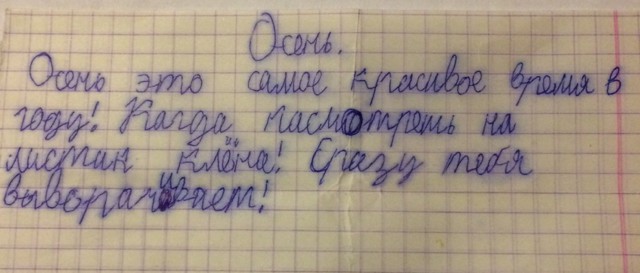 Осень.
Осень это самое красивое время в
году! Кагда пасмотришь на
листик клёна! Сразу тебя
выворачивает!